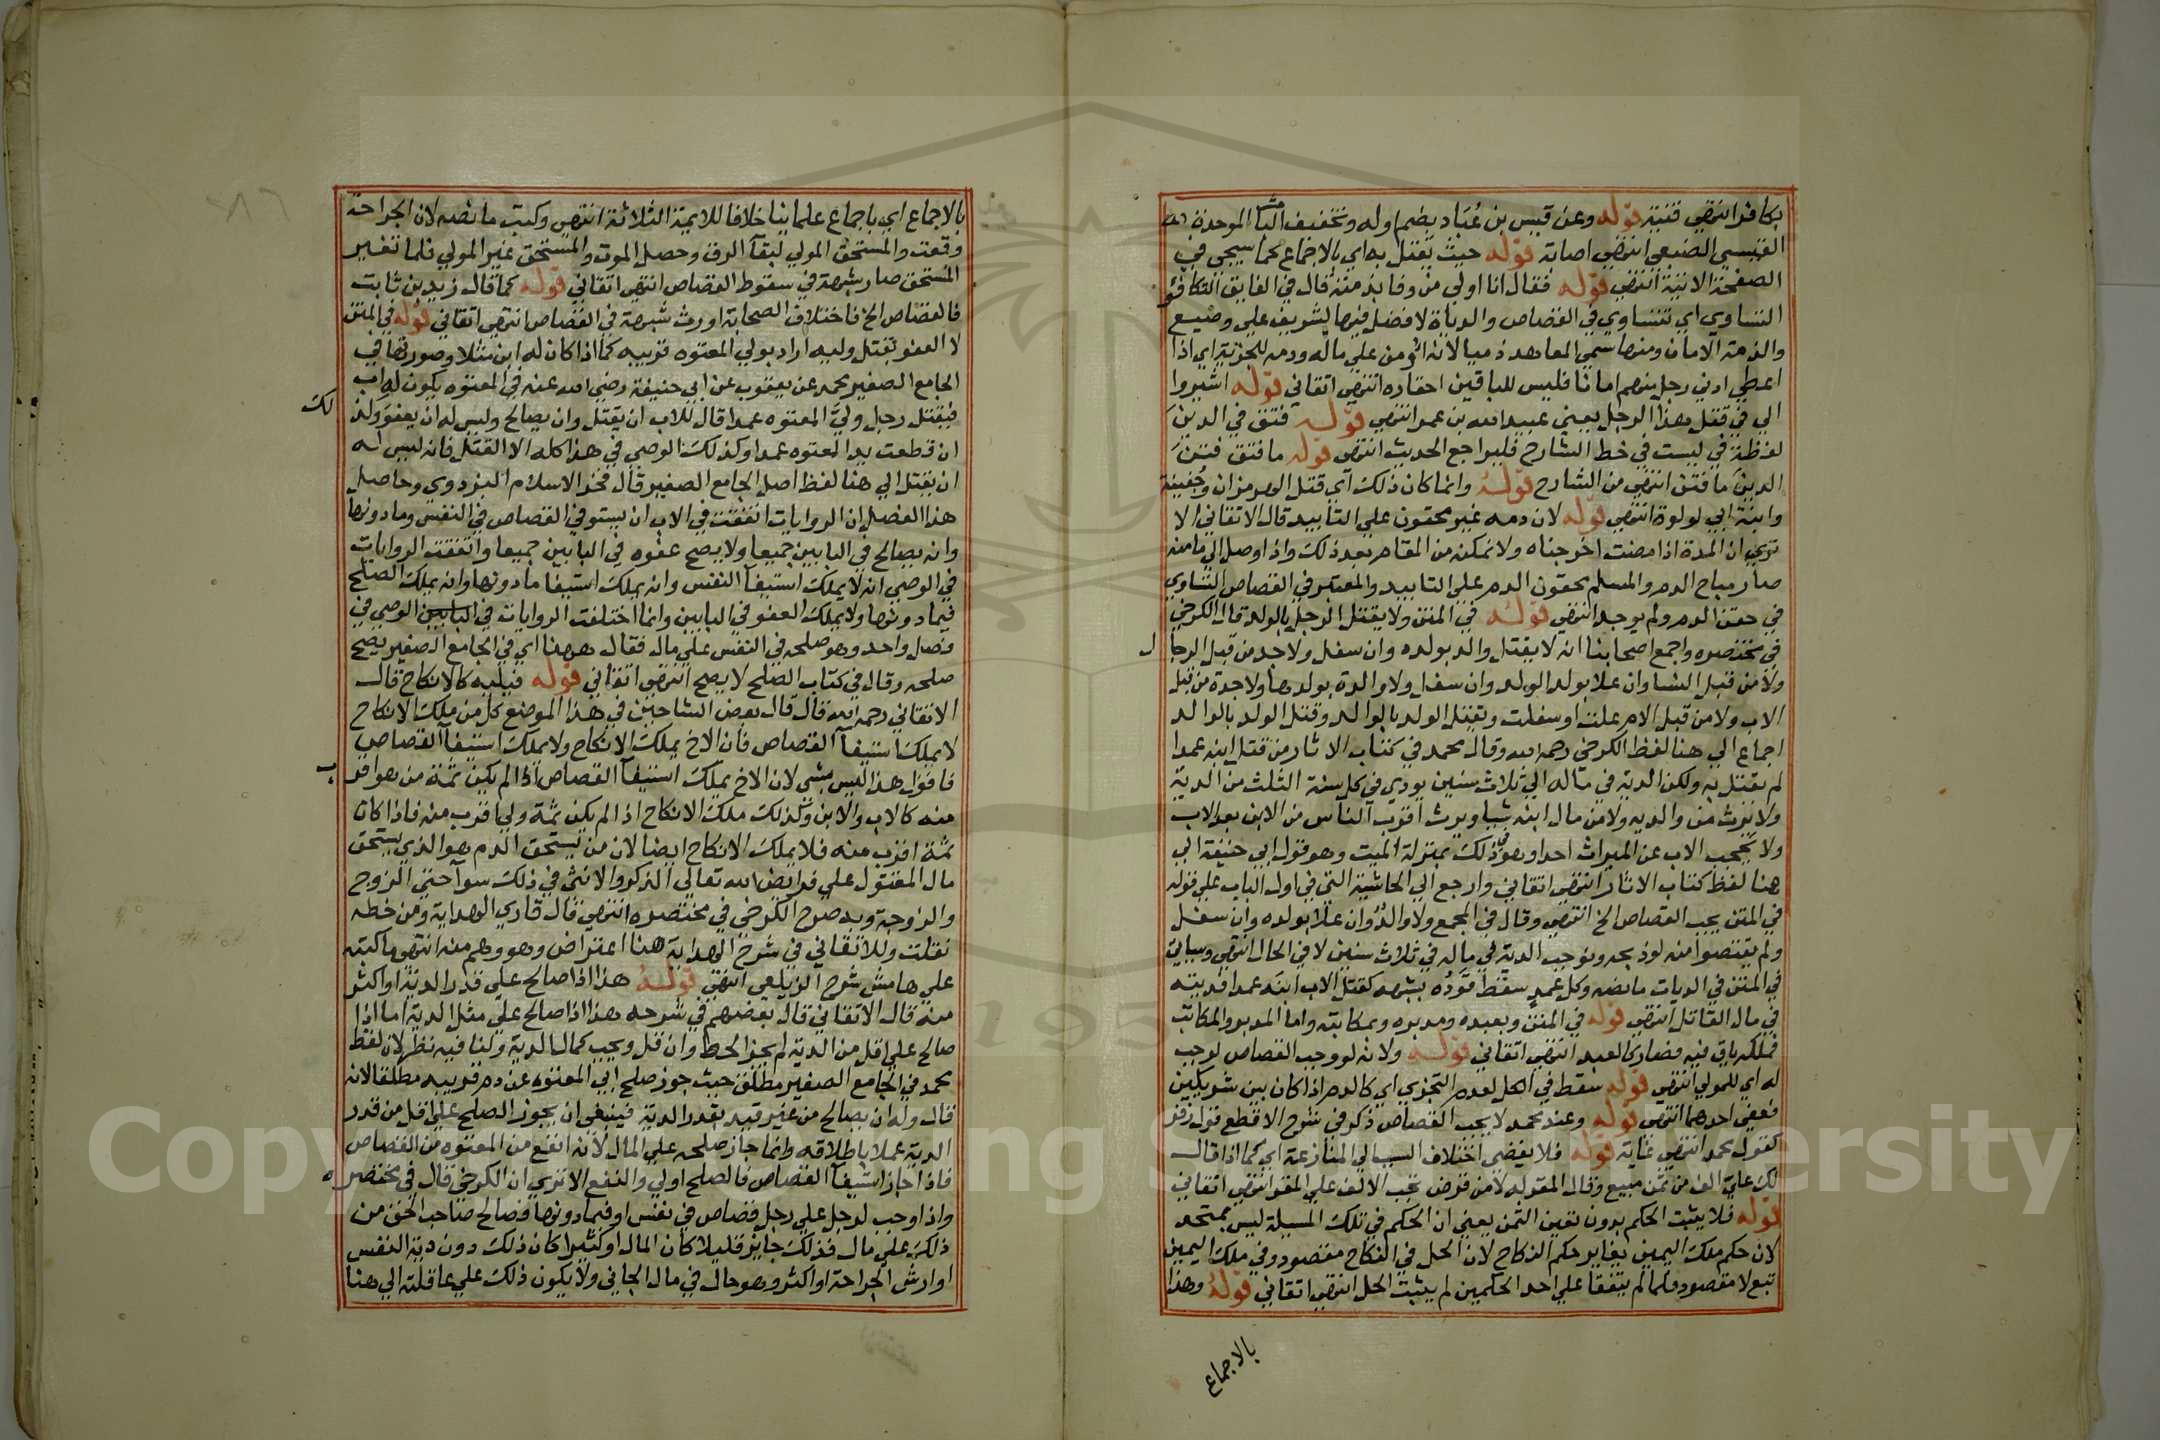 بكافر انتهى قنية قوله وعن قيس بن عُبَاد بضم اوله وتخفيف البا الموحدة
القيسي الضبعي انتهى اصابه قوله حيث يقتل به اي بالاجماع كما سيجي في
الصفحة الاتية انتهى قوله فقال انا اولى من وفا بذمته قال في الفايق التكافؤ
التساوي اي تتساوي في القصاص والدياة لا فضل فيها لشريف علي وضيع
والذمة الامان ومنها سمي المعاهد ذميا لانه اؤمن علي ماله ودمه للجزية اي اذا
اعطي ادني رجل منهم امانا فليس للباقين اخفاره انتهى اتقاني قوله اشيروا
الي في قتل هذا الرجل يعني عبيد الله بن عمر انتهى قوله فتق في الدين
لفظة في ليست في خط الشارح فليراجع الحديث انتهى قوله ما فتق فتق
الدين ما فتق انتهى من الشارح قوله وانما كان ذلك اي قتل الهرمزان وجُفينة
وابنة ابي لولوة انتهى قوله لان دمه غير محقون علي التأبيد قال الاتقاني الا
تري ان المدة اذا مضت اخرجناه ولا نمكنه من المقام بعد ذلك واذا وصل الي مامنه
صار مباح الدم والمسلم محقون الدم علي التابيد والمعتبر في القصاص التساوي
في حقن الدم ولم يوجد انتهى قوله في المتن ولا يقتل الرجل بالولد قال الكرخي
في مختصره واجمع اصحابنا انه لا يقتل والد بولده وان سفل ولا جد من قبل الرجال
ولا من قبل النسا وان علا بولد الولد وان سفل ولا والدة بولدها ولا جدة من قبل
الاب ولا من قبل الام علت او سفلت ويقتل الولد بالوالد وقتل الولد بالوالد
اجماع الي هنا لفظ الكرخي رحمه الله وقال محمد في كتاب الاثار من قتل ابنه عمدا
لم يقتل به ولكن الدية في ماله الي ثلاث سنين يودي في كل سنة الثلث من الدية
ولا يرث من والديه ولا من مال ابنه شيا ويرث اقرب الناس من الابن بعد الاب
ولا يحجب الاب عن الميراث احدا وهو في ذلك بمنزلة الميت وهو قول ابي حنيفة الي
هنا لفظ كتاب الاثار انتهى اتقاني وارجع الي الحاشية التي في اول الباب علي قوله
في المتن يجب القصاص الخ انتهى وقال في المجمع ولا والدٌ وان علا بولده وان سفل
ولم يقتصوا منه لو ذبحه ونوجب الدية في ماله في ثلاث سنين لا في الحال انتهى وسياتي
في المتن في الديات ما نصه وكل عمدٍ سقط قَوَدُه بشبهه كقتل الاب ابنَه عمدا فديته
في مال القاتل انتهى قوله في المتن وبعبده ومدبره وبمكاتبه واما المدبر والمكاتب
فملكه باق فيه فصار كالعبد انتهى اتقاني قوله ولانه لو وجب القصاص لوجب
له اي للمولي انتهى قوله سقط في الكل لعدم التجزي اي كالدم اذا كان بين شريكين
فعفي احدهما انتهى قوله وعند محمد لا يجب القصاص ذكر في شرح الاقطع قول زفر
كقول محمد انتهى غاية قوله فلا يفضي اختلاف السبب الي المنازعة اي كما اذا قال
لك علي الف من ثمن مبيع وقال المقر له لا من قرض يجب الالف علي المقر انتهى اتقاني
قوله فلا يثبت الحكم بدون تعين الثمن يعني ان الحكم في تلك المسيلة ليس بمتحد
لان حكم ملك اليمين يغاير حكم النكاح لان الحل في النكاح مقصود وفي ملك اليمين
تبع لا مقصود فلما لم يتفقا علي احد الحكمين لم يثبت الحل انتهى اتقاني قوله وهذا
بالاجماع
بالاجماع اي باجماع علمائنا خلافا للايمة الثلاثة انتهى وكتب ما نصه لان الجراحة
وقعت والمستحق المولي لبقآ الرق وحصل الموت والمستحق غير المولي فلما تغير
المستحق صار شبهة في سقوط القصاص انتهى اتقاني قوله كما قال زيد بن ثابت
فالقصاص الخ فاختلاف الصحابة اورث شبهة في القصاص انتهى اتقاني قوله في المتن
لا العفو بقتل وليه اراد بولي المعتوه قريبه كما اذا كان له ابن مثلا وصورتها في
الجامع الصغير محمد عن يعقوب عن ابي حنيفة رضي الله عنه في المعتوه يكون له اب
فيقتل رجل وليَّ المعتوه عمدا قال للاب ان يقتل وان يصالح وليس له ان يعفو وكذلك
ان قطعت يد المعتوه عمدا وكذلك الوصي في هذا كله الا القتل فانه ليس له
ان يقتل الي هنا لفظ اصل الجامع الصغير قال فخر الاسلام البزدوي وحاصل
هذا الفصل ان الروايات اتفقت في الاب ان يستوفي القصاص في النفس وما دونها
وانه يصالح في البابين جميعا ولا يصح عفوه في البابين جميعا واتفقت الروايات
في الوصي انه لا يملك استيفآ النفس وانه يملك استيفا ما دونها وانه يملك الصلح
فيما دونها ولا يملك العفو في البابين وانما اختلفت الروايات في البابين الوصي في
فصل واحد وهو صلحه في النفس علي مال فقال ههنا اي في الجامع الصغير يصح
صلحه وقال في كتاب الصلح لا يصح انتهى اتقاني قوله فيليه كالانكاح قال
الاتقاني رحمه الله قال قال بعض الشارحين في هذا الموضع كل من ملك الانكاح
لا يملك استيفآ القصاص فان الاخ يملك الانكاح ولا يملك استيفآ القصاص
فاقول هذا ليس بشي لان الاخ يملك استيفآ القصاص اذا لم يكن ثمة من هو اقرب
منه كالاب والابن وكذلك ملك الانكاح اذا لم يكن ثمة ولي اقرب منه فاذا كان
ثمة اقرب منه فلا يملك الانكاح ايضا لان من يستحق الدم هو الذي يستحق
مال المقتول علي فرائض الله تعالي الذكر والانثي في ذلك سوآ حتي الزوج
والزوجة وبه صرح الكرخي في مختصره انتهى قال قاري الهداية ومن خطه
نقلت وللاتقاني في شرح الهداية هنا اعتراض وهو وهم منه انتهى ما كتبه
علي هامش شرح الزيلعي انتهى قوله هذا اذا صالح علي قدر الدية او اكثر
منه قال الاتقاني قال بعضهم في شرحه هذا اذا صالح علي مثل الدية اما اذا
صالح علي اقل من الدية لم يجز الحط وان قل ويجب كمال الدية ولنا فيه نظر لان لفظ
محمد في الجامع الصغير مطلق حيث جوز صلح ابي المعتوه عن دم قريبه مطلقا لانه
قال وله ان يصالح من غير قيد بقدر الدية فينبغي ان يجوز الصلح علي اقل من قدر
الدية عملا باطلاقه وانما جاز صلحه علي المال لانه انفع من المعتوه من القصاص
فاذا جاز استيفآ القصاص فالصلح اولي والنفع الا تري ان الكرخي قال في مختصره
واذا وجب لرجل علي رجل قصاص في نفس او فيما دونها فصالح صاحب الحق من
ذلك علي مال فذلك جايز قليلا كان المال او كثيرا كان ذلك دون دية النفس
او ارش الجراحة او اكثر وهو حال في مال الجاني ولا يكون ذلك علي عاقلته الي هنا